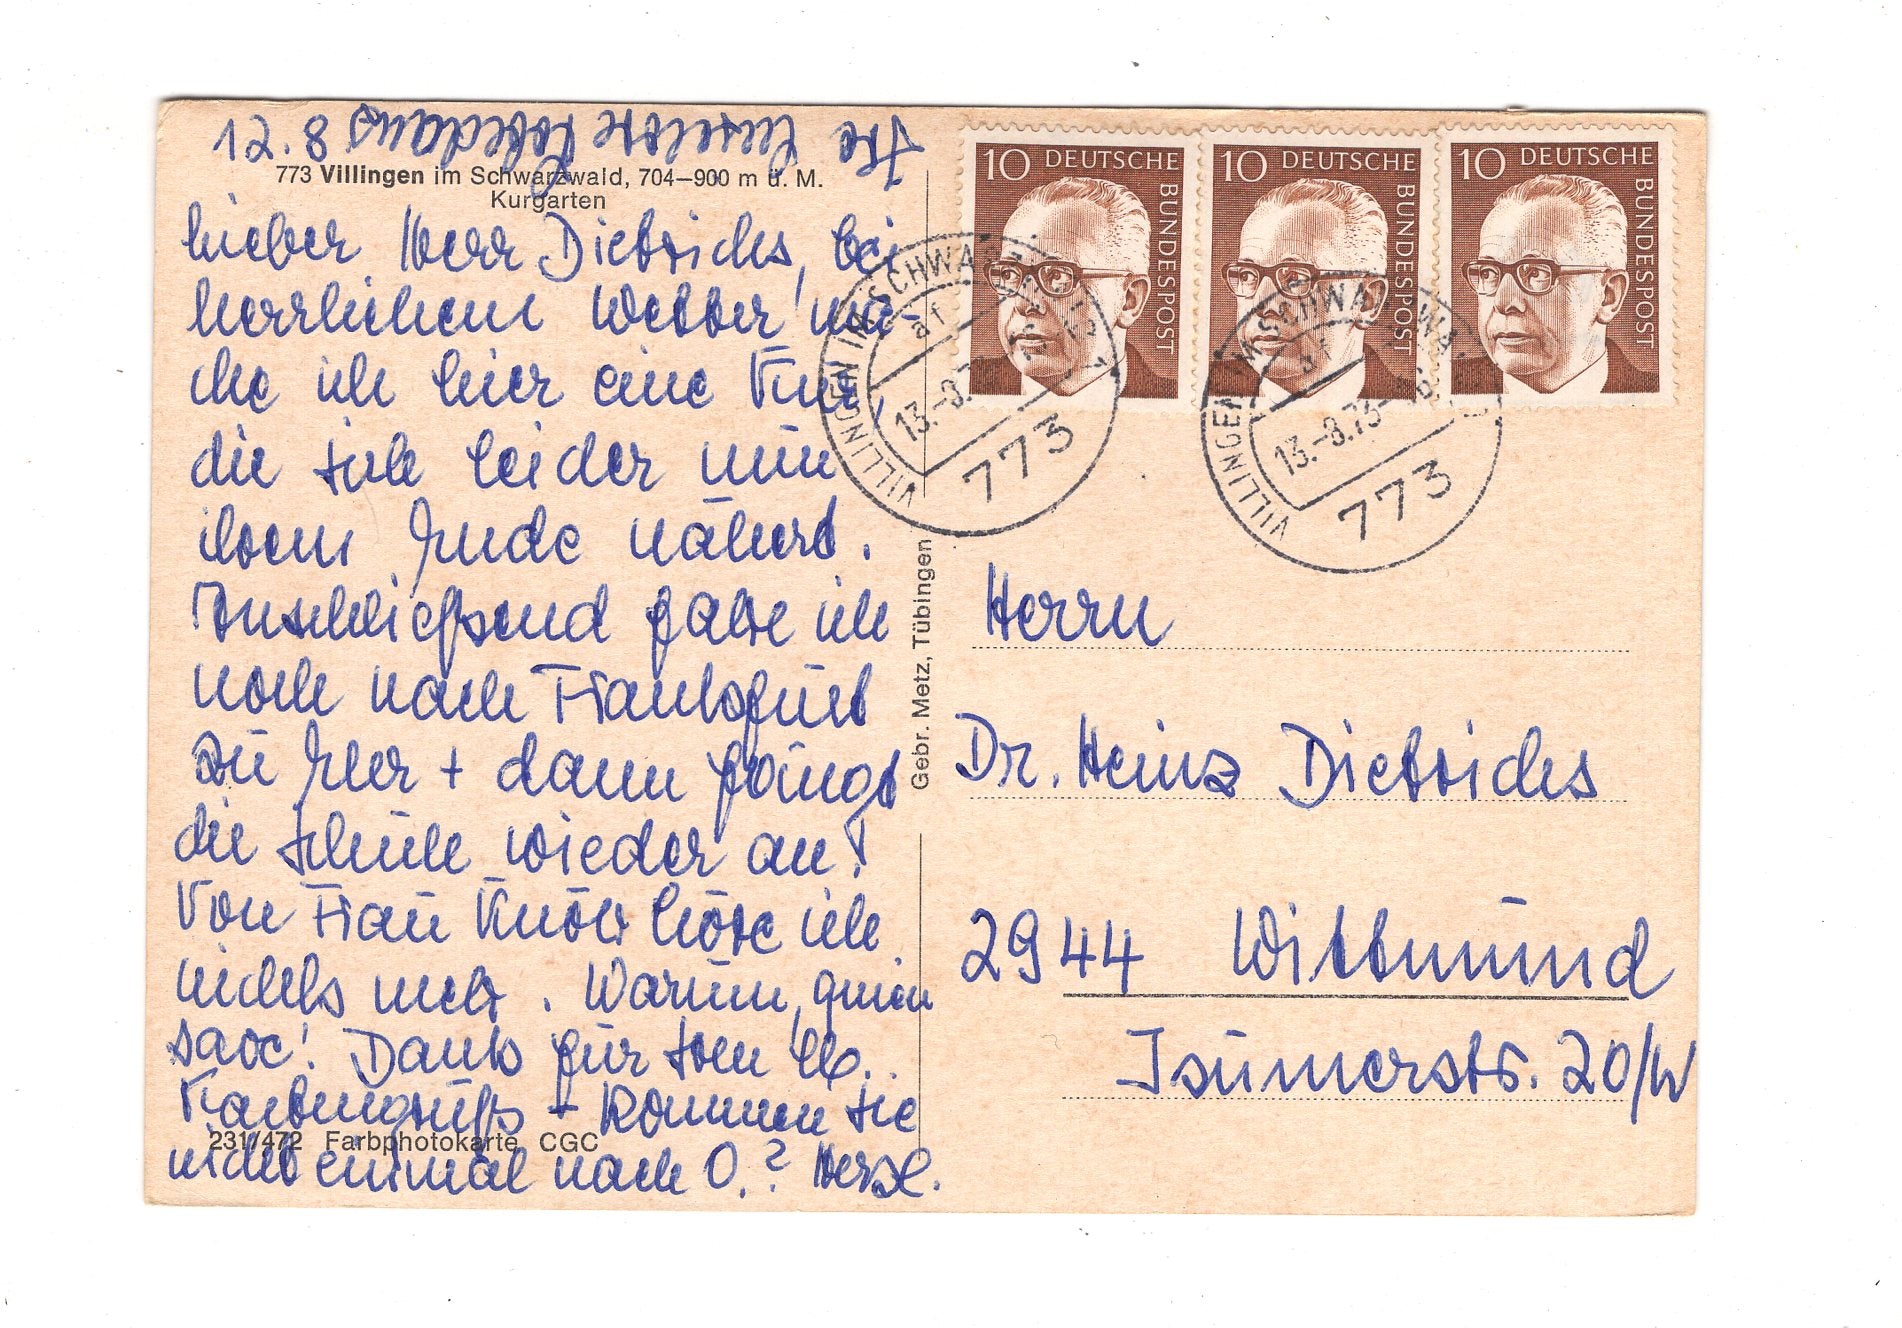 12.8
773 Villingen im Schwarzwald, 704–900 m ü. M.
Kurgarten
Lieber Herr Dietrichs, bei
herrlichem Wetter ma-
che ich hier eine Kur,
die sich leider nun
ihrem Ende nähert.
Anschließend fahre ich
noch nach Frankfurt
zu
+ dann fängt
die Schule wieder an!
Von Frau Knörr höre ich
nichts mehr. Warum,
Dank für Ihren lb.
Kartengruß + Kommen Sie
nicht einmal nach O.? Herzl.
231/472 Farbphotokarte CGC
Ihre
Gebr. Metz, Tübingen
10 DEUTSCHE BUNDESPOST
10 DEUTSCHE BUNDESPOST
10 DEUTSCHE BUNDESPOST
VILLINGEN IM SCHWARZWALD
af
13.-8.73
773
VILLINGEN IM SCHWARZWALD
af
13.-8.73
773
Herrn
Dr. Heinz Dietrichs
2944 Wittmund
Isumerstr. 20/W